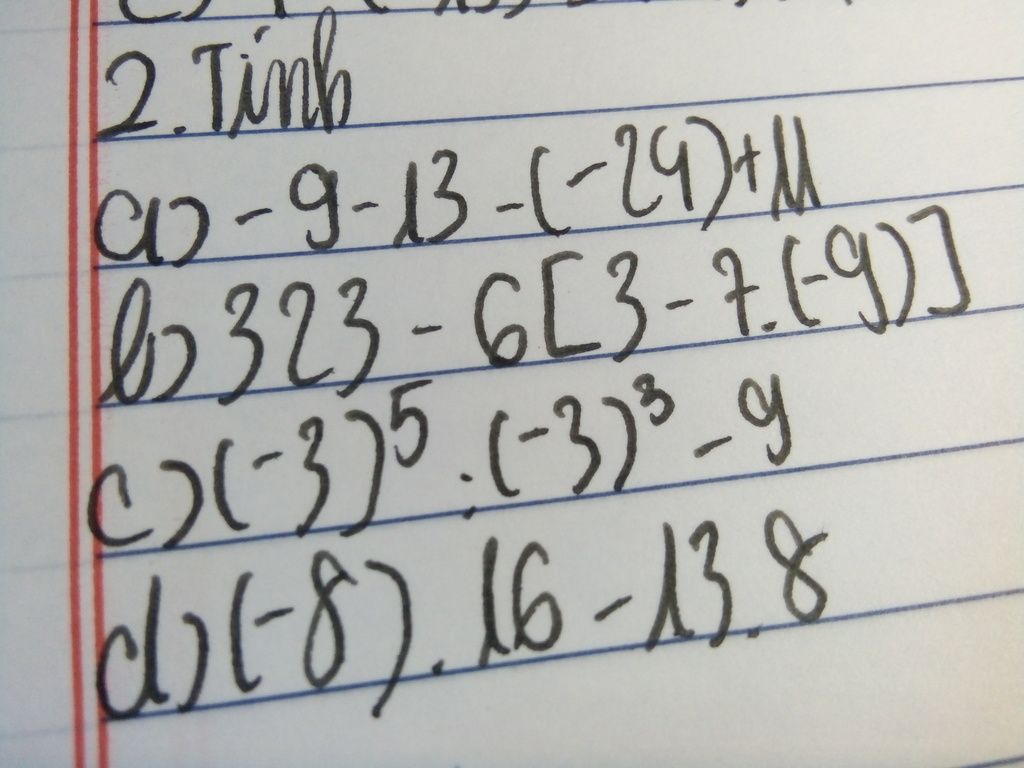 2. Tính
a) -9-13-(-24)+11
b) 323-6[3-7.(-9)]
c) (-3)⁵:(-3)³-9
d) (-8).16-13.8